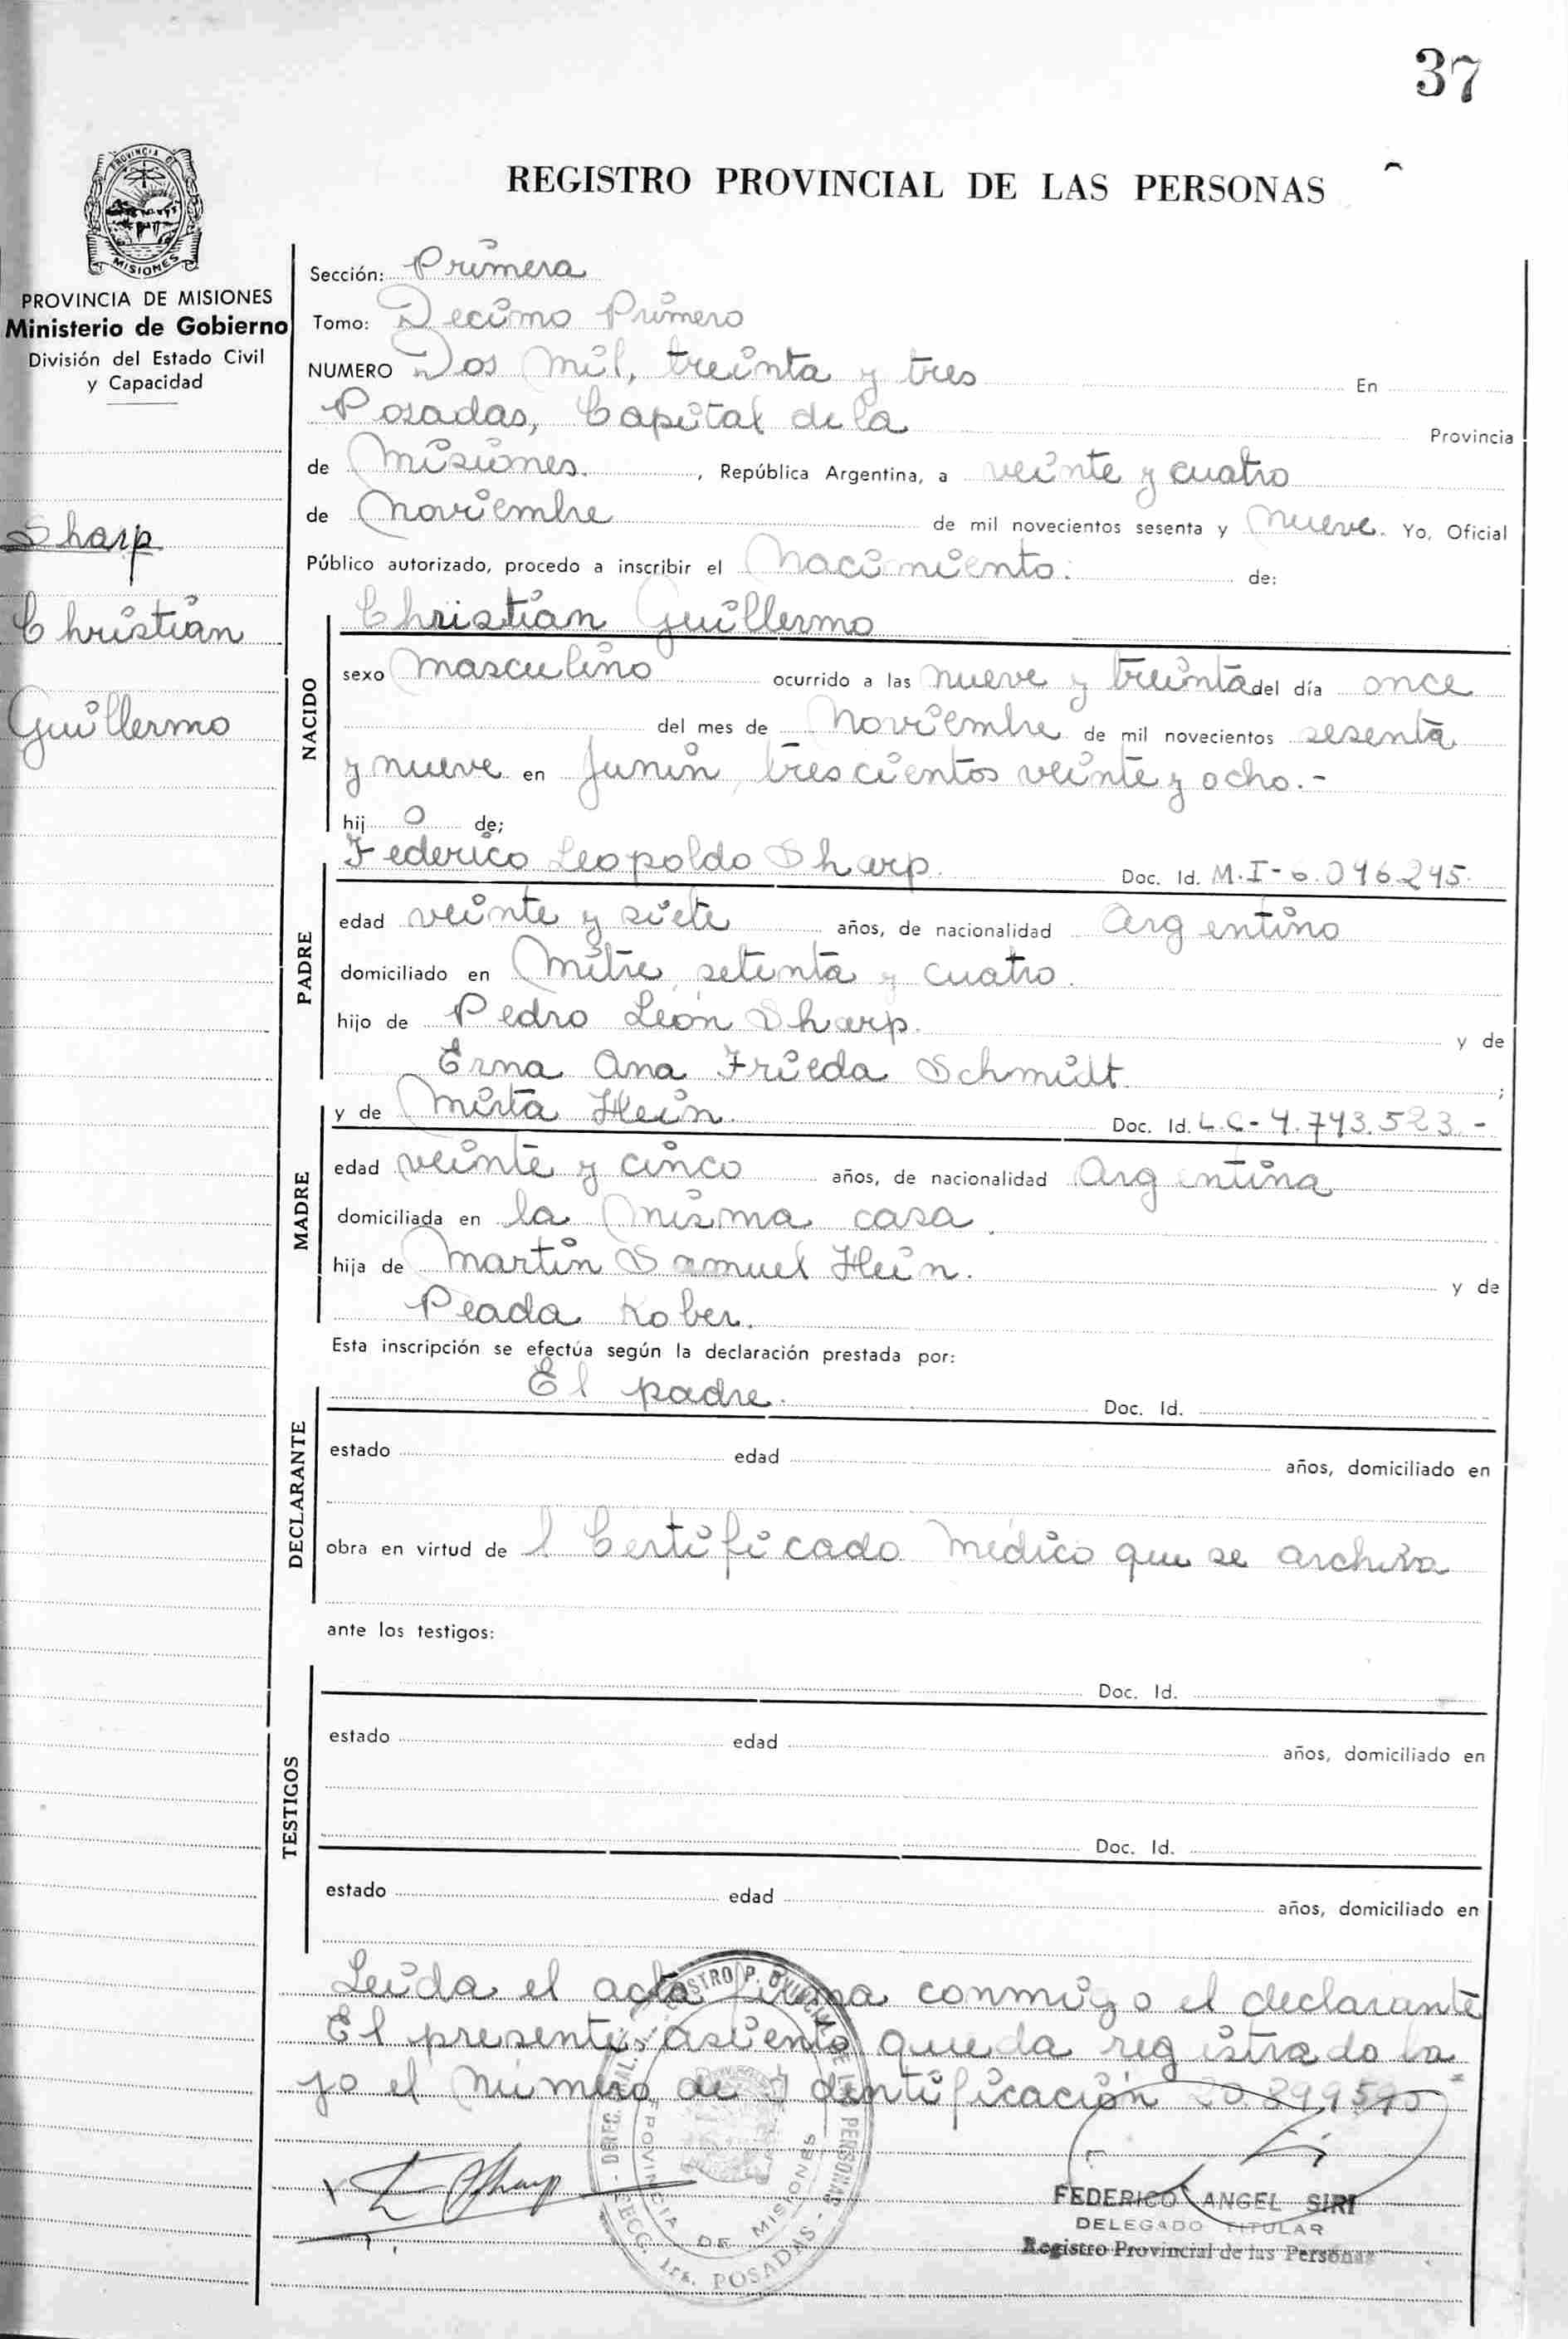 37
REGISTRO PROVINCIAL DE LAS PERSONAS
PROVINCIA DE
MISIONES
PROVINCIA DE MISIONES
Ministerio de Gobierno
División del Estado Civil
y Capacidad
Sharp
Christian
Guillermo
Sección: Primera
Tomo: Decimo Primero
NUMERO Dos mil, treinta y tres En
Posadas, Capital de la Provincia
de Misiones. , República Argentina, a veinte y cuatro
de Noviembre de mil novecientos sesenta y nueve. Yo, Oficial
Público autorizado, procedo a inscribir el Nacimiento. de:
NACIDO
Christian Guillermo
sexo masculino ocurrido a las nueve y treinta del día once
del mes de Noviembre de mil novecientos sesenta
y nueve en Junin, trescientos veinte y ocho.-
hij o de;
PADRE
Federico Leopoldo Sharp. Doc. Id. M.I-6.046245.
edad veinte y siete años, de nacionalidad Argentino
domiciliado en Mitre, setenta y cuatro.
hijo de Pedro León Sharp. y de
Erna Ana Frieda Schmidt. ;
MADRE
y de Mirta Hein. Doc. Id. L.C-4.743.523.-
edad veinte y cinco años, de nacionalidad Argentina
domiciliada en la misma casa.
hija de Martin Samuel Hein. y de
Peada Kober.
Esta inscripción se efectúa según la declaración prestada por:
DECLARANTE
El padre. Doc. Id.
estado edad años, domiciliado en
obra en virtud de l Certificado médico que se archiva
ante los testigos:
TESTIGOS
Doc. Id.
estado edad años, domiciliado en
Doc. Id.
estado edad años, domiciliado en
Leida el acta firma conmigo el declarante
El presente asiento queda registrado ba
jo el número de Identificación
PROVINCIA DE MISIONES
POSADAS
Sharp
FEDERICO ANGEL SIRI
DELEGADO TITULAR
Registro Provincial de las Personas